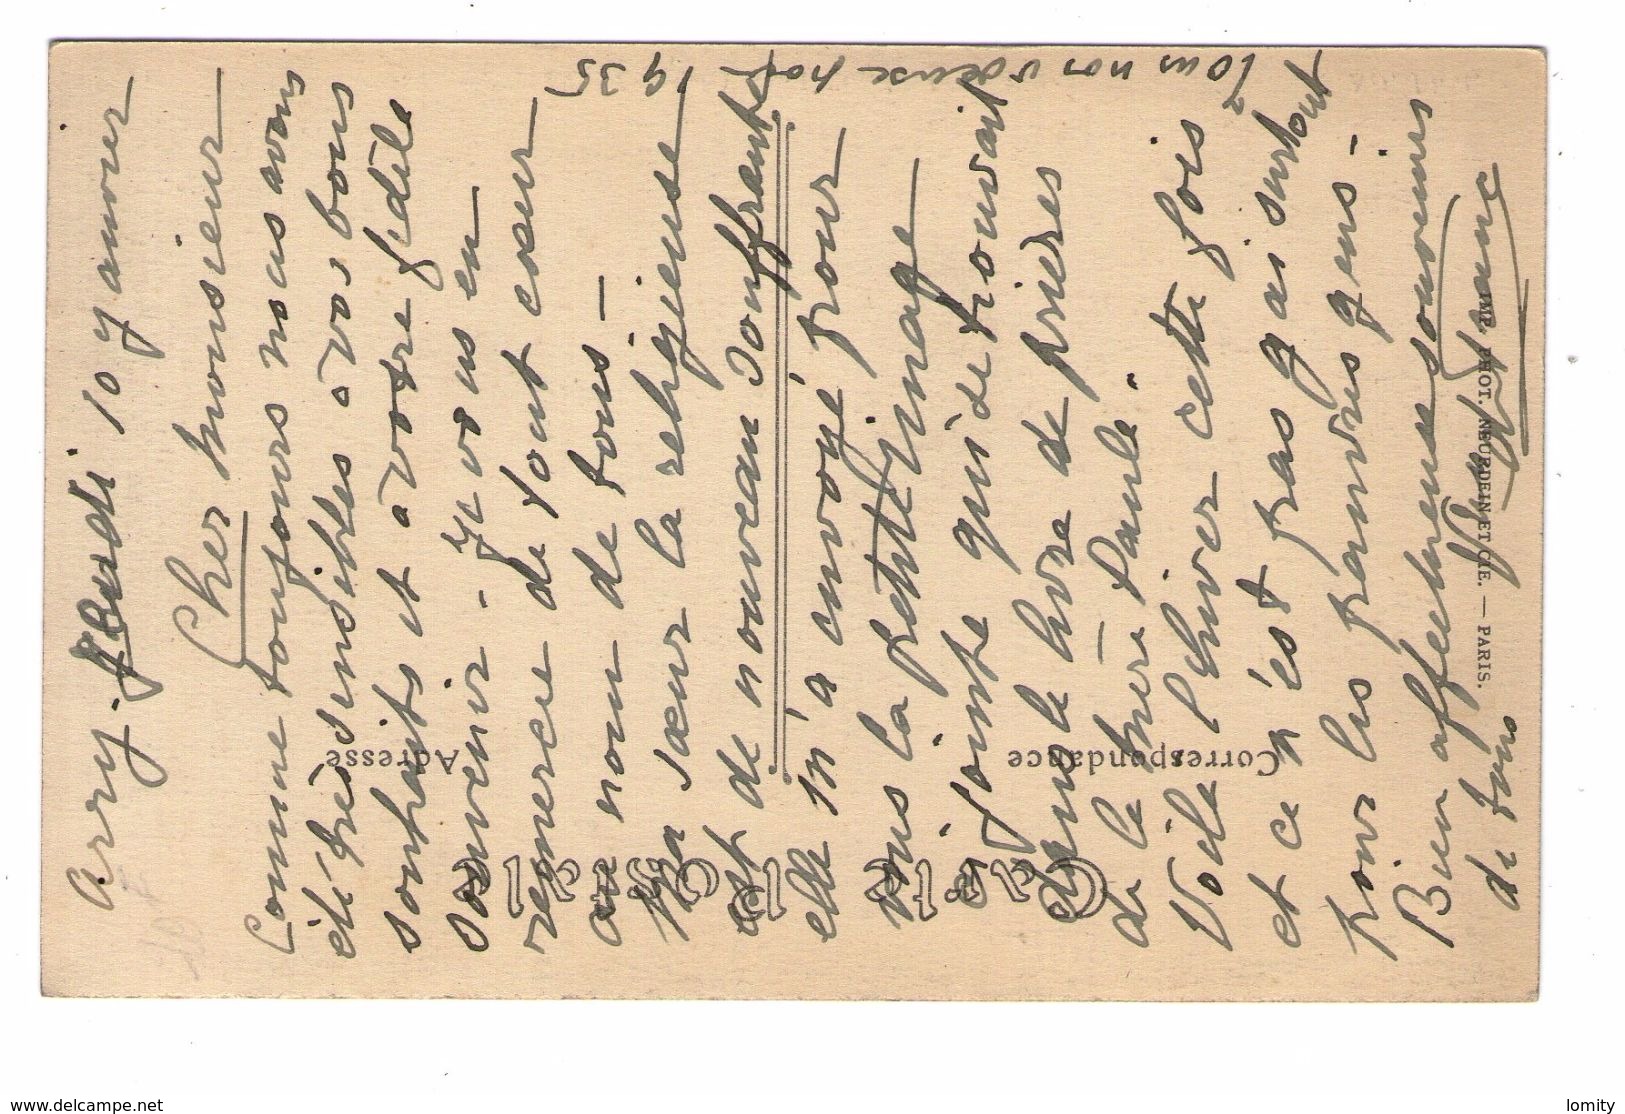 Arry. Jeudi 10 janvier
Cher Monsieur
Comme toujours nous avons
été très sensibles à vos bons
souhaits et à votre fidèle
souvenir. Je vous en
remercie de tout cœur
au nom de tous —
Ma sœur la religieuse
est de nouveau souffrante
elle m'a envoyé pour
vous la petite image
ci jointe qui se trouvait
dans le livre de prières
de la mère Paule.
Voilà l'hiver cette fois
et ce n'est pas gai surtout
pour les pauvres gens -
Bien affectueux souvenirs
de tous
Tous nos vœux pour
1935
Carte Postale
Correspondance
Adresse
IMP. PHOT. NEURDEIN ET CIE. — PARIS.
www.delcampe.net
lomity